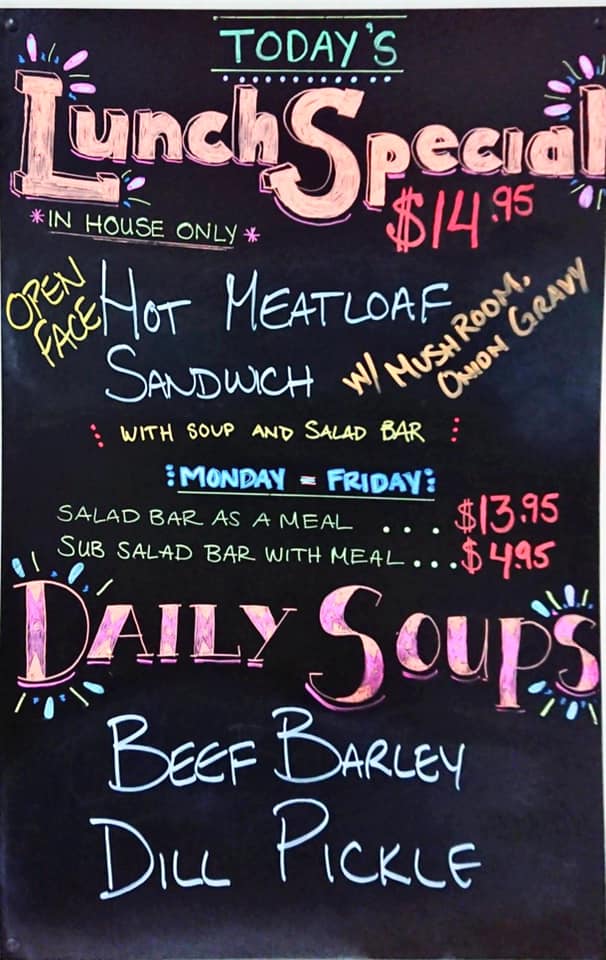 TODAY'S
Lunch Special
*IN HOUSE ONLY*
$14.95
OPEN
FACE
HOT MEATLOAF
SANDWICH
W/ MUSHROOM,
ONION GRAVY
WITH SOUP AND SALAD BAR
MONDAY - FRIDAY
SALAD BAR AS A MEAL ... $13.95
SUB SALAD BAR WITH MEAL... $4.95
DAILY SOUPS
BEEF BARLEY
DILL PICKLE